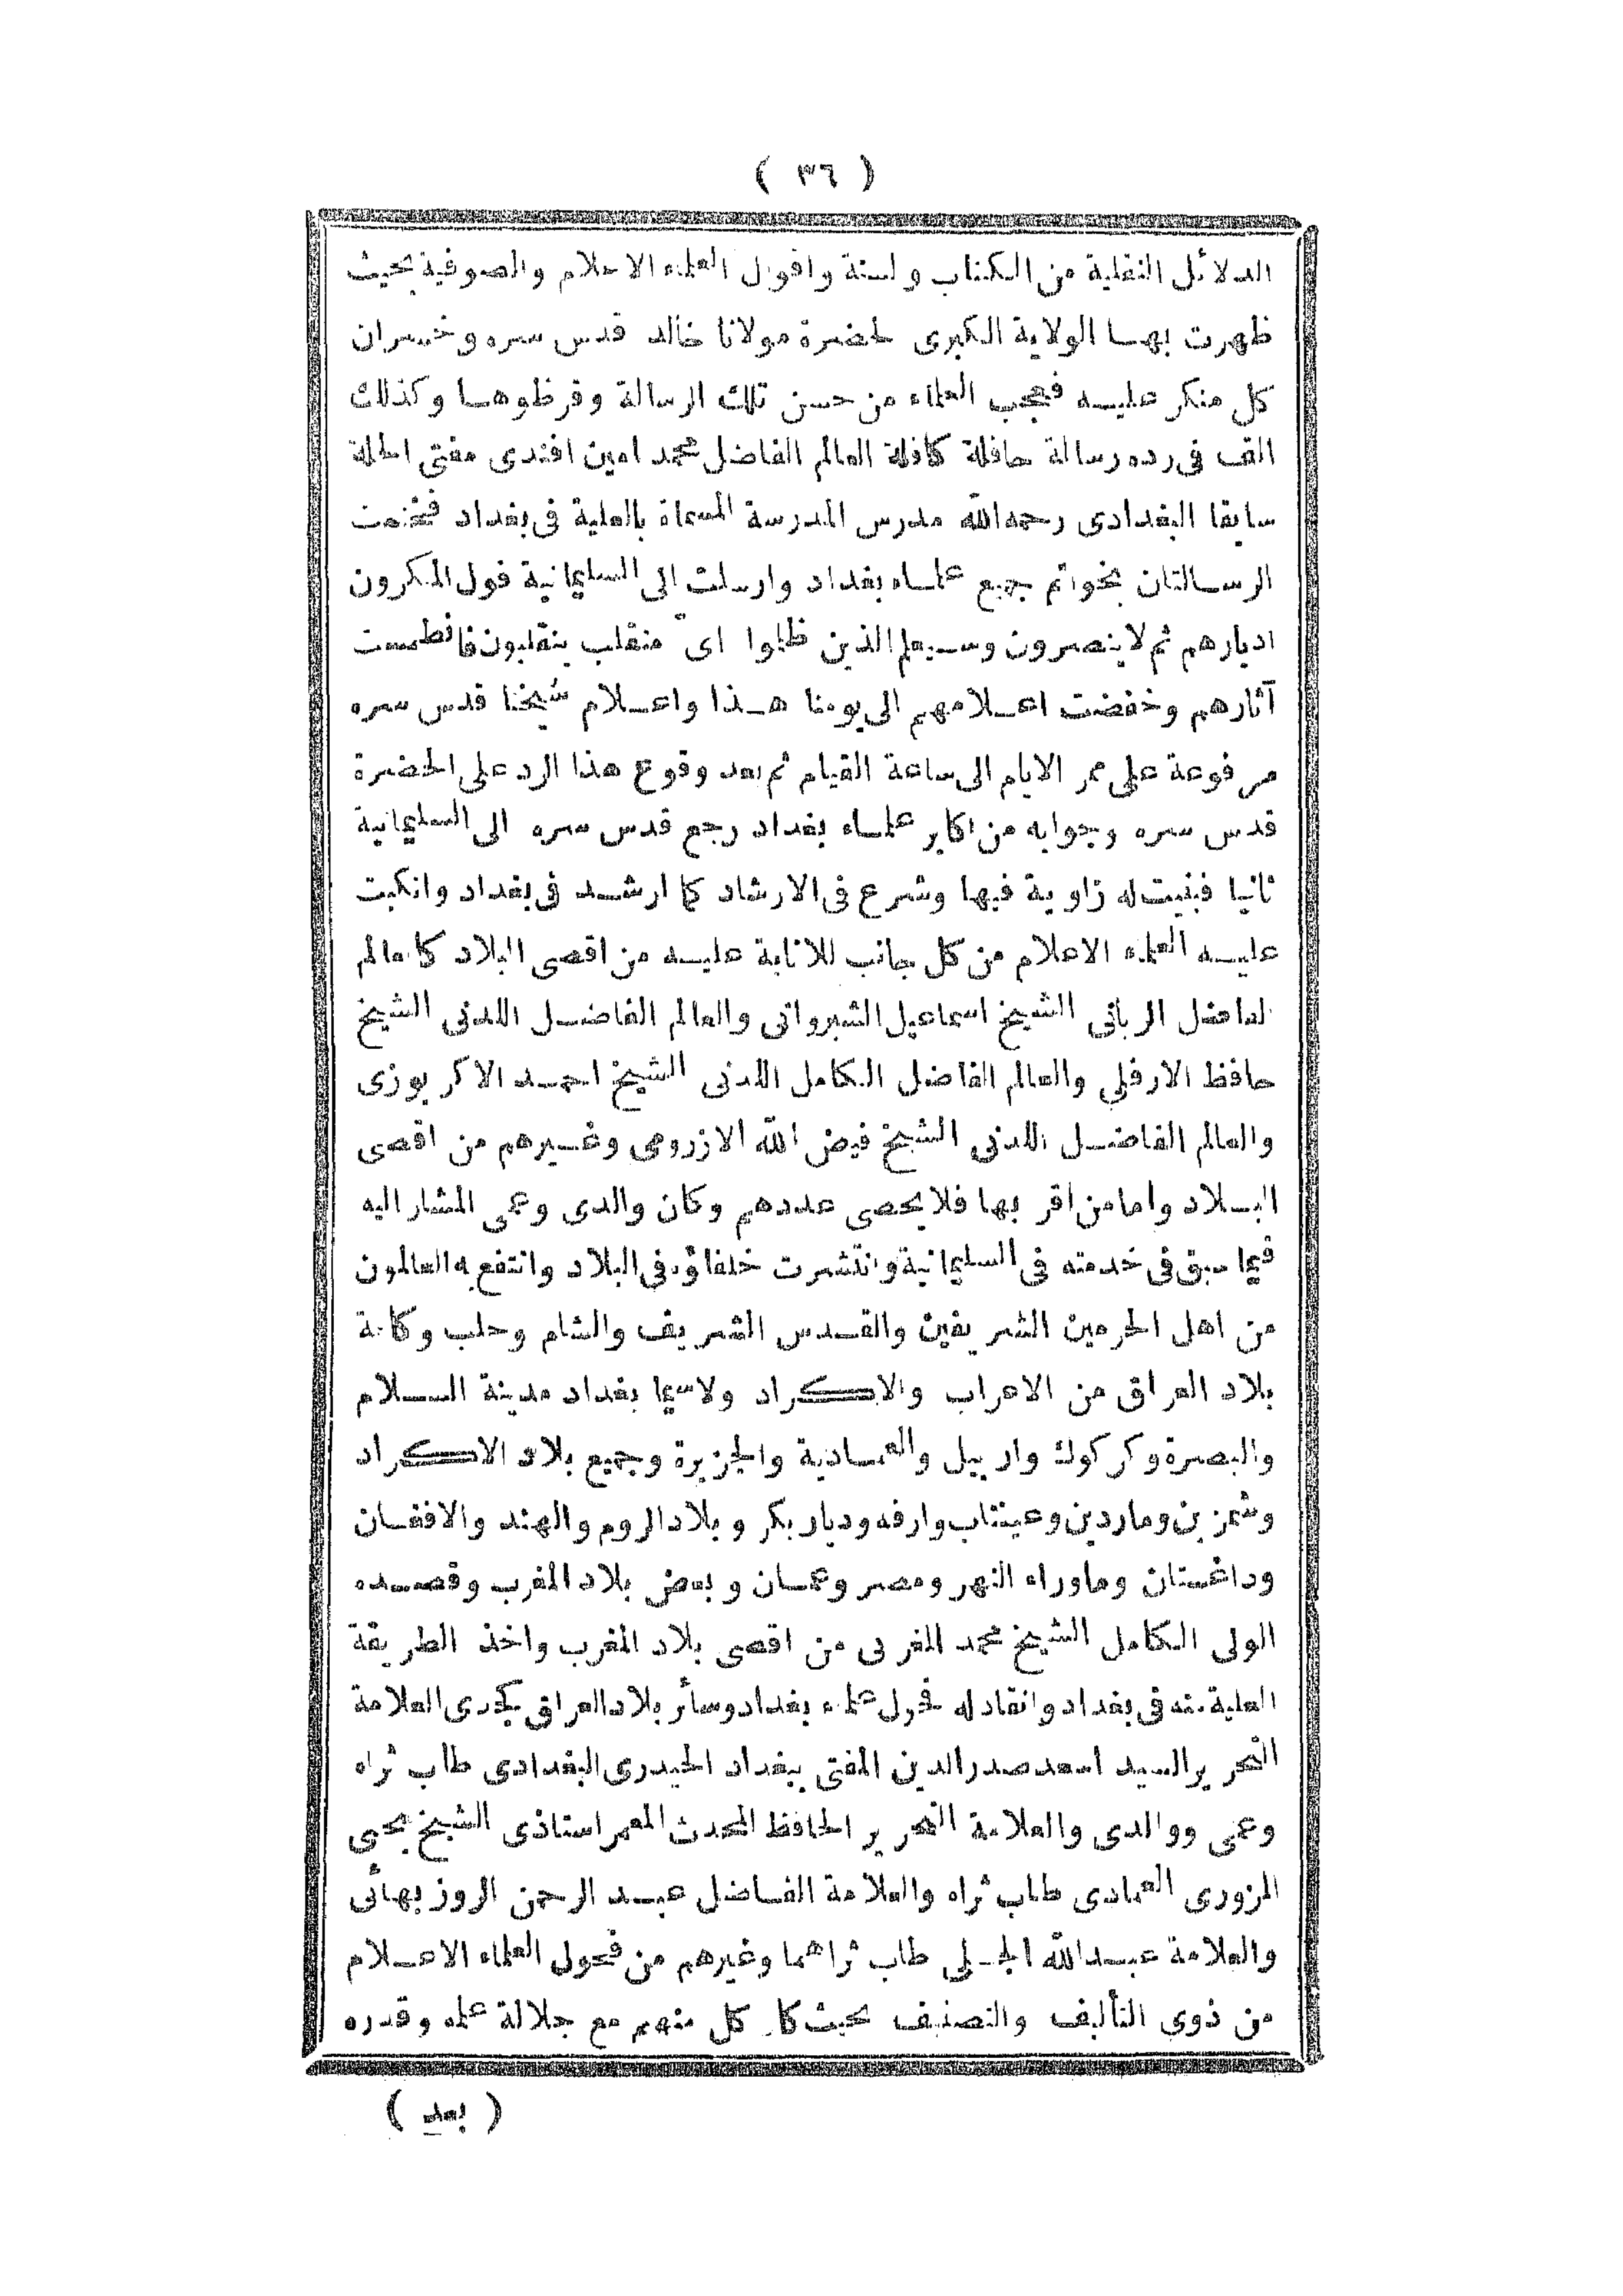 ( ٣٦ )
الدلائل النقلية من الكتاب والسنة واقوال العلماء الاعلام والصوفية بحيث
ظهرت بها الولاية الكبرى لحضرة مولانا خالد قدس سره وخسران
كل منكر عليه فعجب العلماء من حسن تلك الرسالة وقرظوها وكذلك
الف فى رده رسالة حافلة كافلة العالم الفاضل محمد امين افندى مفتى الحلة
سابقا البغدادى رحمه الله مدرس المدرسة المسماة بالعلية فى بغداد فختمت
الرسالتان بخواتم جميع علماء بغداد وارسلت الى السليمانية فول المنكرون
ادبارهم ثم لا ينصرون وسيعلم الذين ظلموا اى منقلب ينقلبون فانطمست
آثارهم وخفضت اعلامهم الى يومنا هذا واعلام شيخنا قدس سره
مرفوعة على ممر الايام الى ساعة القيام ثم بعد وقوع هذا الرد على الحضرة
قدس سره وجوابه من اكابر علماء بغداد رجع قدس سره الى السليمانية
ثانيا فبنيت له زاوية فيها وشرع فى الارشاد كما ارشد فى بغداد وانكبت
عليه العلماء الاعلام من كل جانب للانابة عليه من اقصى البلاد كالعالم
الفاضل الربانى الشيخ اسماعيل الشيروانى والعالم الفاضل اللدنى الشيخ
حافظ الارفلى والعالم الفاضل الكامل اللدنى الشيخ احمد الاكربوزى
والعالم الفاضل اللدنى الشيخ فيض الله الازرومى وغيرهم من اقصى
البلاد وامامن اقر بها فلا يحصى عددهم وكان والدى وعمى المشار اليه
فيما سبق فى خدمته فى السليمانية وانتشرت خلفاؤه فى البلاد وانتفع به العالمون
من اهل الحرمين الشريفين والقدس الشريف والشام وحلب وكافة
بلاد العراق من الاعراب والاكراد ولاسيما بغداد مدينة السلام
والبصرة وكركوك واربيل والعمادية والجزيرة وجميع بلاد الاكراد
وشمزين وماردين وعينتاب وارفه وديار بكر وبلاد الروم والهند والافغان
وداغستان وماوراء النهر ومصر وعمان وبعض بلاد المغرب وقصده
الولى الكامل الشيخ محمد المغربى من اقصى بلاد المغرب واخذ الطريقة
العلية منه فى بغداد وانقاد له فحول علماء بغداد وسائر بلاد العراق كجدى العلامة
النحرير السيد اسعد صدر الدين المفتى ببغداد الحيدرى البغدادى طاب ثراه
وعمى ووالدى والعلامة النحرير الحافظ المحدث المعمر استاذى الشيخ يحيى
المزورى العمادى طاب ثراه والعلامة الفاضل عبد الرحمن الروزبهائى
والعلامة عبد الله الجلى طاب ثراهما وغيرهم من فحول العلماء الاعلام
من ذوى التأليف والتصنيف بحيث كان كل منهم مع جلالة علمه وقدره
( بعد )